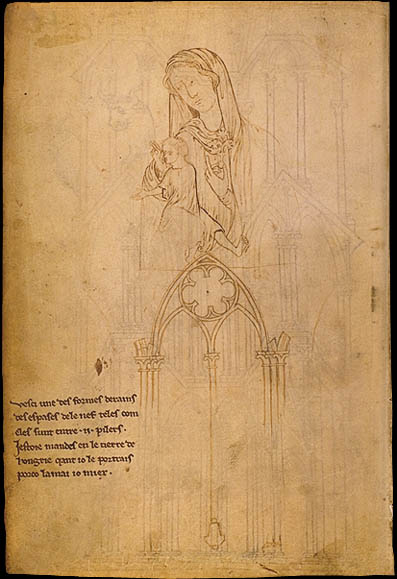 Vesci une des formes de rains
des espases de le nef teles com
eles sunt entre .ii. pilers.
Jestoie mandes en le tierre de
hongrie qant io le portrais
porco lamai io miex.